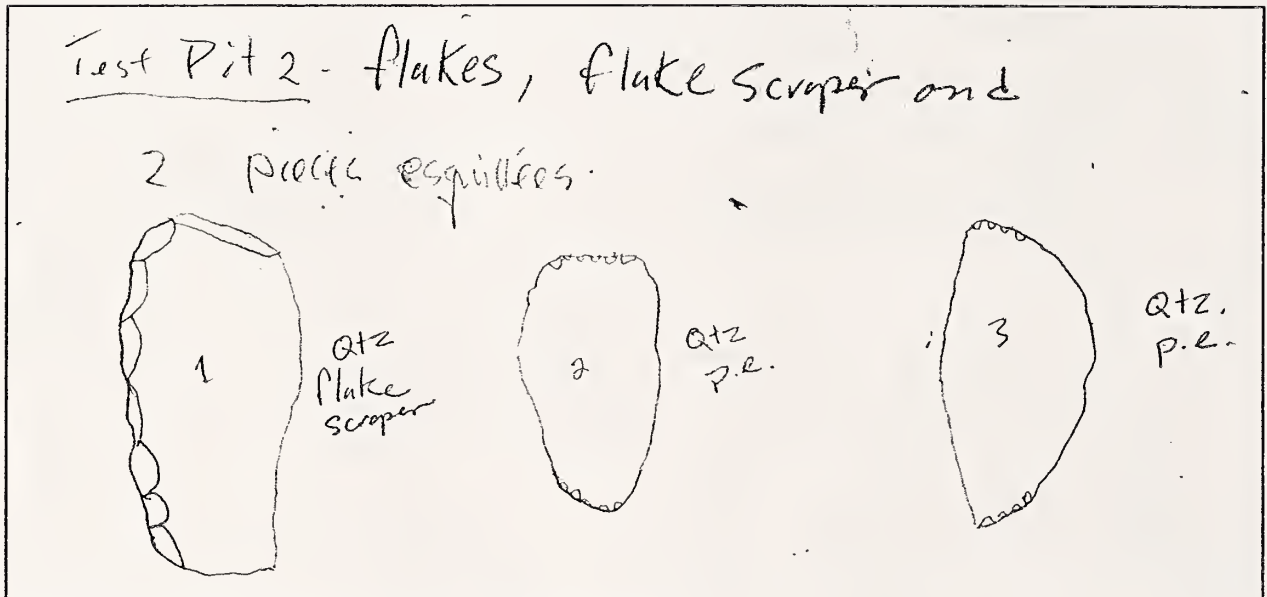 Test Pit 2 - flakes, flake scraper and
2 pieces esquillées.
1
Qtz
flake
scraper
2
Qtz
p.e.
3
Qtz.
p.e.